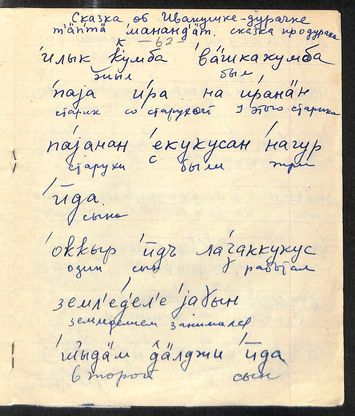 Сказка об Иванушке-дурачке
тӓптӓ мананд'ӓт. сказка про дурака
к — 62 —
'илык к̌умба 'вӓшкакумба
жил был
'паjа и́ра на и́ранӓн
старик со старухой у этого старика
па́jанан 'екукусан 'нагур
старухи с были три
'ӣда.
сына
'оккыр 'ӣдъ ла́ӷаккукус
один сын работал
земл'е́дел'е 'jаӷын
земледелием занимался
'шы̄дӓм д̂ӓлджи 'ӣда
второй сын